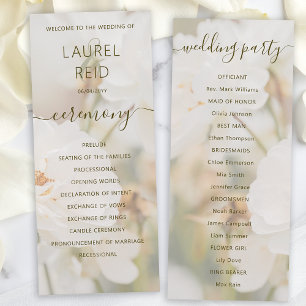 WELCOME TO THE WEDDING OF
LAUREL
REID
06/04/20YY
ceremony
PRELUDE
SEATING OF THE FAMILIES
PROCESSIONAL
OPENING WORDS
DECLARATION OF INTENT
EXCHANGE OF VOWS
EXCHANGE OF RINGS
CANDLE CEREMONY
PRONOUNCEMENT OF MARRIAGE
RECESSIONAL
wedding party
OFFICIANT
Rev. Mark Williams
MAID OF HONOR
Olivia Johnson
BEST MAN
Ethan Thompson
BRIDESMAIDS
Chloe Emmerson
Mia Smith
Jennifer Grace
GROOMSMEN
Noah Barker
James Campbell
Liam Burns
FLOWER GIRL
Lily Dove
RING BEARER
Max Kain